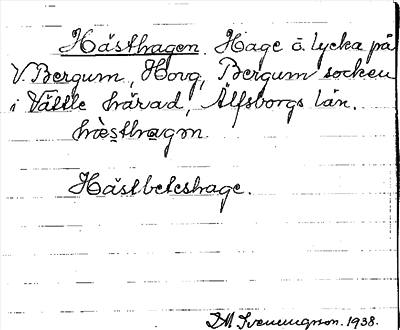 Hästhagen. Hage o. lycka på
V. Bergum, Horg, Bergum socken
i Vättle härad, Älfsborgs län.
hæ̀sthagm.
Hästbeteshage.
D M Svenungson. 1938.